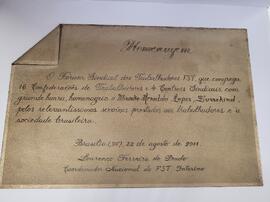 Homenagem
O Fórum Sindical dos Trabalhadores FST, que congrega
16 Confederações de Trabalhadores e 4 Centrais Sindicais com
grande honra, homenageia o Ministro Arnaldo Lopes Süssekind,
pelos relevantíssimos serviços prestados aos trabalhadores e à
sociedade brasileira.
Brasília (DF), 22 de agosto de 2011.
Lourenço Ferreira do Prado
Coordenador Nacional do FST Interino